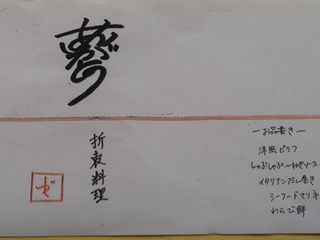 折衷料理
ぜ
―お品書き―
洋風ピラフ
しゃぶしゃぶ〜ねぎソース
イタリアンだし巻き
シーフードマリネ
わらび餅